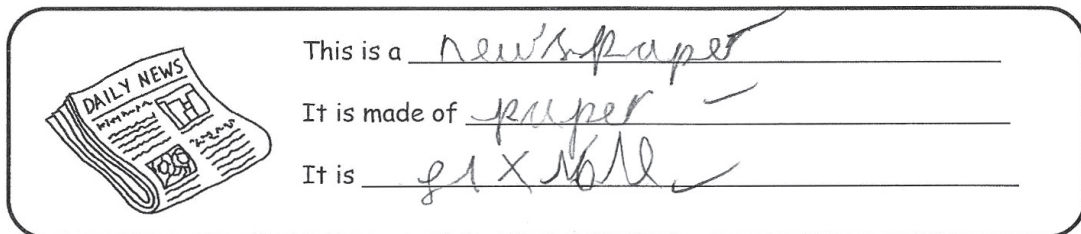 DAILY NEWS
This is a newspaper
It is made of paper
It is